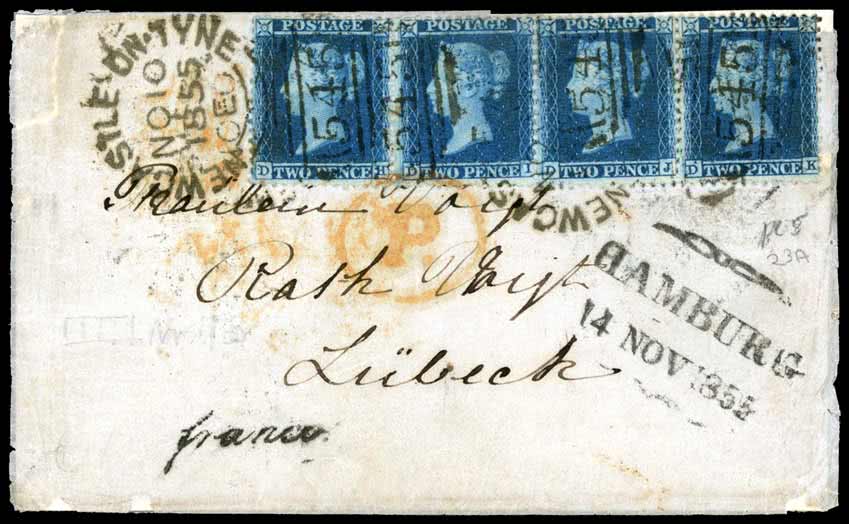 POSTAGE POSTAGE POSTAGE POSTAGE
545 545 545 545
TWO PENCE TWO PENCE TWO PENCE TWO PENCE
D H D I D J D K
NEWCASTLE-ON-TYNE
NO 10
1855
NEWCAS
P
Fräulein Voigt
Rath Voigt
Lübeck
franco
HAMBURG
14 NOV 1855
pl 5
23A